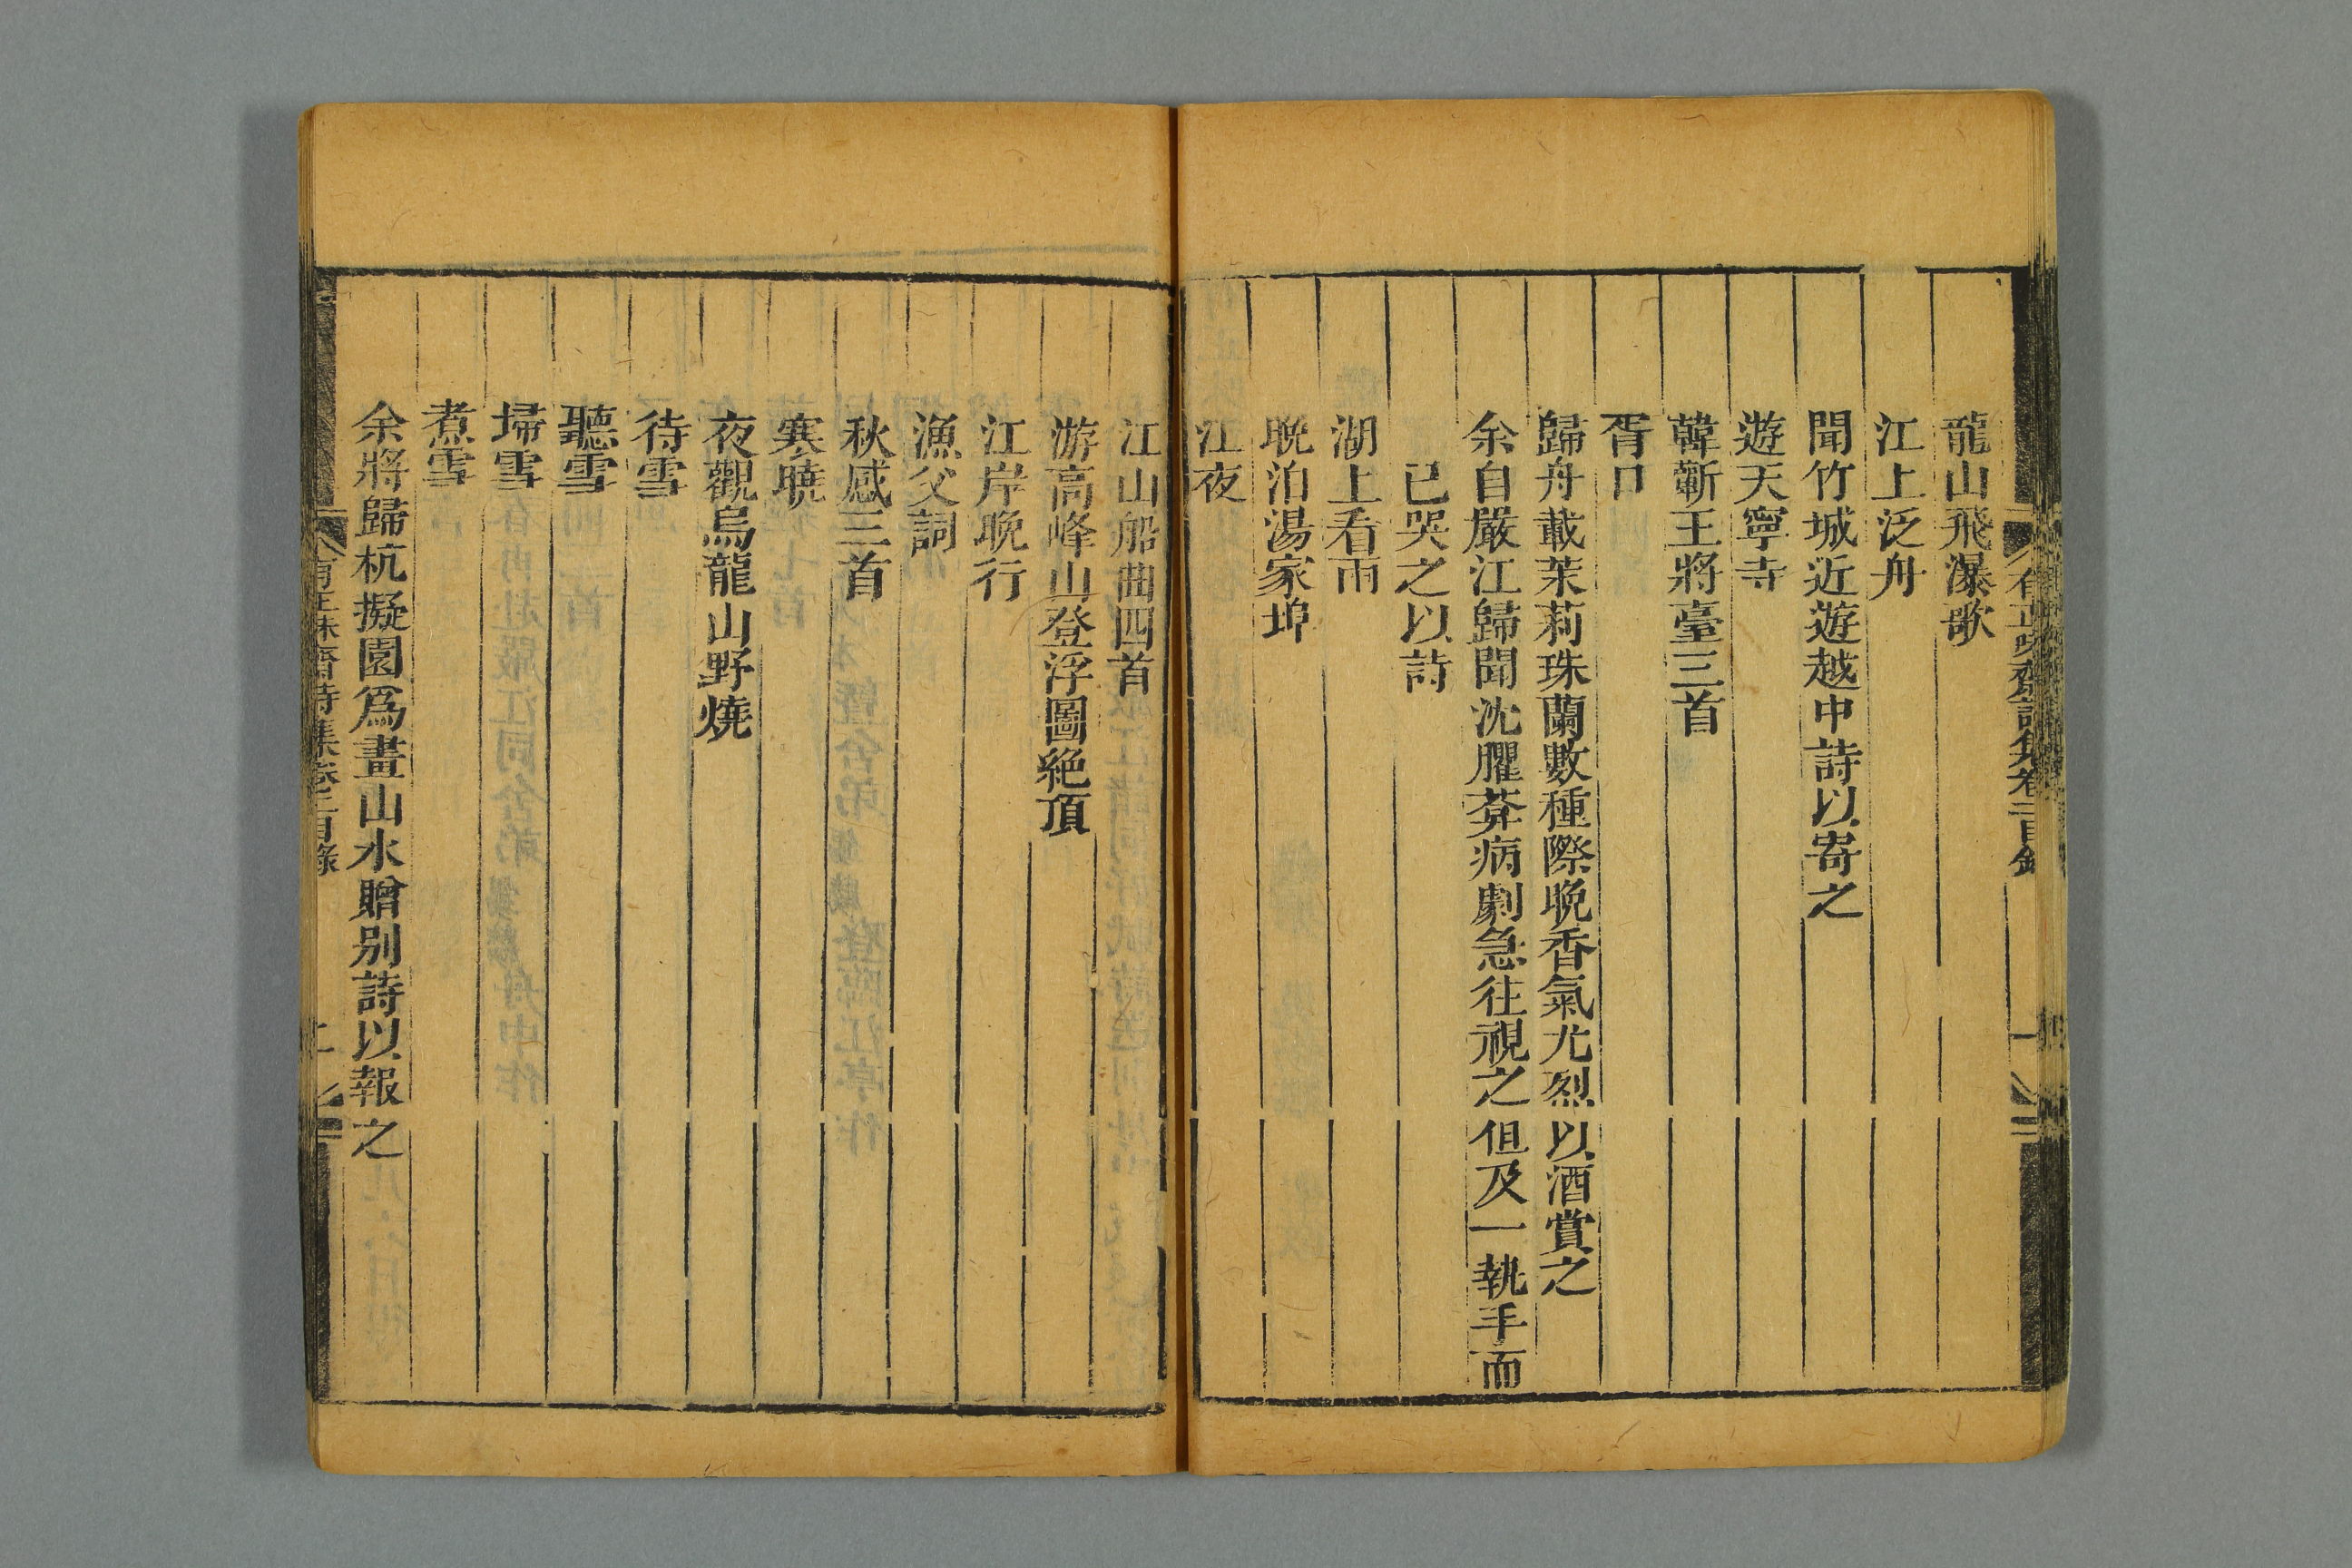 有正味齋詩集卷二目錄
龍山飛瀑歌
江上泛舟
聞竹城近遊越中詩以寄之
遊天寧寺
韓蘄王將臺三首
胥口
歸舟載茉莉珠蘭數種際晚香氣尤烈以酒賞之
余自嚴江歸聞沈臞莽病劇急往視之但及一執手而
已哭之以詩
湖上看雨
晩泊湯家埠
江夜
江山船曲四首
游高峰山登浮圖絕頂
江岸晩行
漁父詞
秋感三首
寒曉
夜觀烏龍山野燒
待雪
聽雪
埽雪
煮雪
余將歸杭擬園爲畫山水贈别詩以報之
有正味齋詩集卷二目錄
二